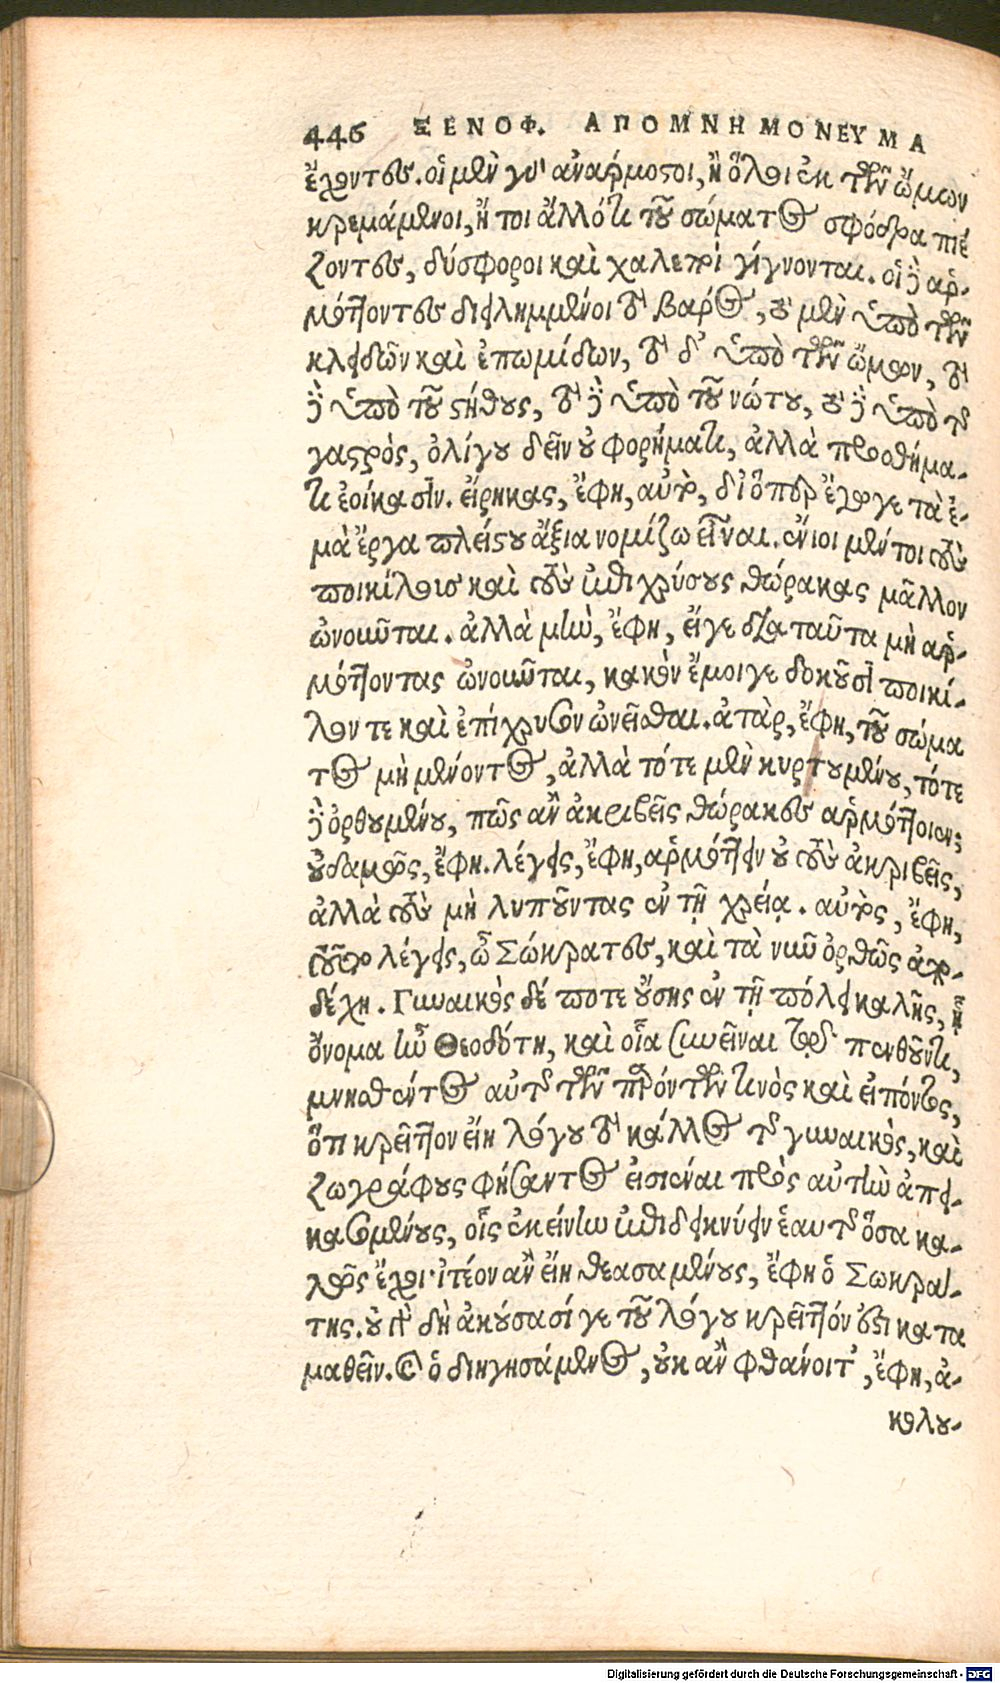 446 ΞΕΝΟΦ. ΑΠΟΜΝΗΜΟΝΕΥΜΑ
ἔχοντες. οἱ μὲν γὰρ ἀνάρμοστοι, ἢ ὅλοι ἐκ τῶν ὤμων
κρεμάμενοι, ἤ τοι ἄλλό τι τοῦ σώματος σφόδρα πιέ
ζοντες, δύσφοροι καὶ χαλεποὶ γίγνονται. οἱ δὲ ἁρ-
μόττοντες διειλημμένοι τὸ βάρος, τὸ μὲν ὑπὸ τῶν
κλειδῶν καὶ ἐπωμίδων, τὸ δ' ὑπὸ τῶν ὤμων, τὸ
δὲ ὑπὸ τοῦ στήθους, τὸ δὲ ὑπὸ τοῦ νώτου, τὸ δὲ ὑπὸ τῆς
γαστρὸς, ὀλίγου δεῖν οὐ φορήματι, ἀλλὰ προσθήμα-
τι ἐοίκασιν. εἴρηκας, ἔφη, αὐτὸ, δι' ὅπερ ἔγωγε τὰ ἐ-
μὰ ἔργα πλείστου ἄξια νομίζω εἶναι. ἔνιοι μέντοι τοὺς
ποικίλους καὶ τοὺς ἐπιχρύσους θώρακας μᾶλλον
ὠνοῦνται. ἀλλὰ μὴν, ἔφη, εἴγε διὰ ταῦτα μὴ ἁρ-
μόττοντας ὠνοῦνται, κακὸν ἔμοιγε δοκοῦσι ποικί-
λον τε καὶ ἐπίχρυσον ὠνεῖσθαι. ἀτὰρ, ἔφη, τοῦ σώμα
τος μὴ μένοντος, ἀλλὰ τότε μὲν κυρτουμένου, τότε
δὲ ὀρθουμένου, πῶς ἂν ἀκριβεῖς θώρακες ἁρμόττοιεν;
οὐδαμῶς, ἔφη. λέγεις, ἔφη, ἁρμόττειν οὐ τοὺς ἀκριβεῖς,
ἀλλὰ τοὺς μὴ λυποῦντας ἐν τῇ χρείᾳ. αὐτὸς, ἔφη,
τοῦτο λέγεις, ὦ Σώκρατες, καὶ τὰ νῦν ὀρθῶς ἀπο-
δέχῃ. Γυναικὸς δέ ποτε οὔσης ἐν τῇ πόλει καλῆς, ᾗ
ὄνομα ἦν Θεοδότη, καὶ οἵα συνεῖναι τῷ πείθοντι,
μνησθέντος αὐτῆς τῶν παρόντων τινὸς καὶ εἰπόντος,
ὅτι κρεῖττον εἴη λόγου τὸ κάλλος τῆς γυναικὸς, καὶ
ζωγράφους φήσαντος εἰσιέναι πρὸς αὐτὴν ἀπει-
κασομένους, οἷς ἐκείνην ἐπιδεικνύειν ἑαυτῆς ὅσα κα-
λῶς ἔχοι· ἰτέον ἂν εἴη θεασαμένους, ἔφη ὁ Σωκρά-
της. οὐ γὰρ δὴ ἀκούσασί γε τοῦ λόγου κρεῖττόν ἐστι κατα
μαθεῖν. καὶ ὁ διηγησάμενος, οὐκ ἂν φθάνοιτ', ἔφη, ἀ-
κολου-
Digitalisierung gefördert durch die Deutsche Forschungsgemeinschaft - DFG